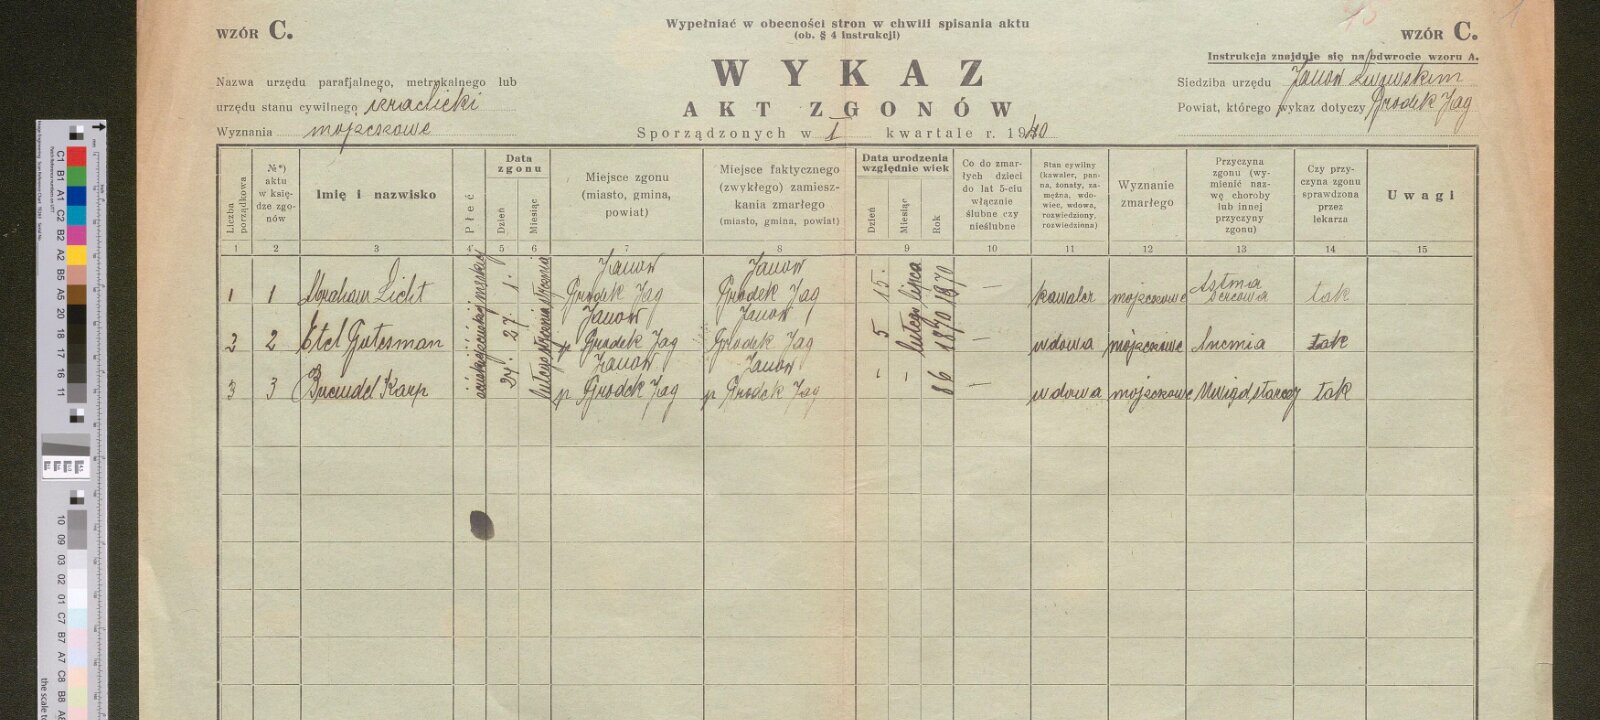 WZÓR C.
Wypełniać w obecności stron w chwili spisania aktu
(ob. § 4 instrukcji)
WZÓR C.
Instrukcja znajduje się na odwrocie wzoru A.
WYKAZ
AKT ZGONÓW
Sporządzonych w I kwartale r. 1940
Nazwa urzędu parafjalnego, metrykalnego lub
urzędu stanu cywilnego izraelicki
Wyznania mojżeszowe
Siedziba urzędu Janów Lwowskim
Powiat, którego wykaz dotyczy Gródek Jag
Liczba porządkowa
№*) aktu w księdze zgonów
Imię i nazwisko
Płeć
Data zgonu
Dzień
Miesiąc
Miejsce zgonu
(miasto, gmina, powiat)
Miejsce faktycznego (zwykłego) zamieszkania zmarłego
(miasto, gmina, powiat)
Data urodzenia względnie wiek
Dzień
Miesiąc
Rok
Co do zmarłych dzieci do lat 5-ciu włącznie ślubne czy nieślubne
Stan cywilny (kawaler, panna, żonaty, zamężna, wdowiec, wdowa, rozwiedziony, rozwiedziona)
Wyznanie zmarłego
Przyczyna zgonu (wymienić nazwę choroby lub innej przyczyny zgonu)
Czy przyczyna zgonu sprawdzona przez lekarza
Uwagi
1 2 3 4 5 6 7 8 9 10 11 12 13 14 15
1 1 Abraham Licht męskiej 1. stycznia Janów Gródek Jag Janów Gródek Jag 15. lipca 1870 — kawaler mojżeszowe Astma sercowa tak
2 2 Etel Gutesman żeńskiej 27 stycznia Janów p Gródek Jag Janów Gródek Jag 5 lutego 1870 — wdowa mojżeszowe Anemia tak
3 3 Breindel Karp żeńskiej 24. lutego Janów p Gródek Jag Janów p Gródek Jag 86 — wdowa mojżeszowe Uwiąd starczy tak